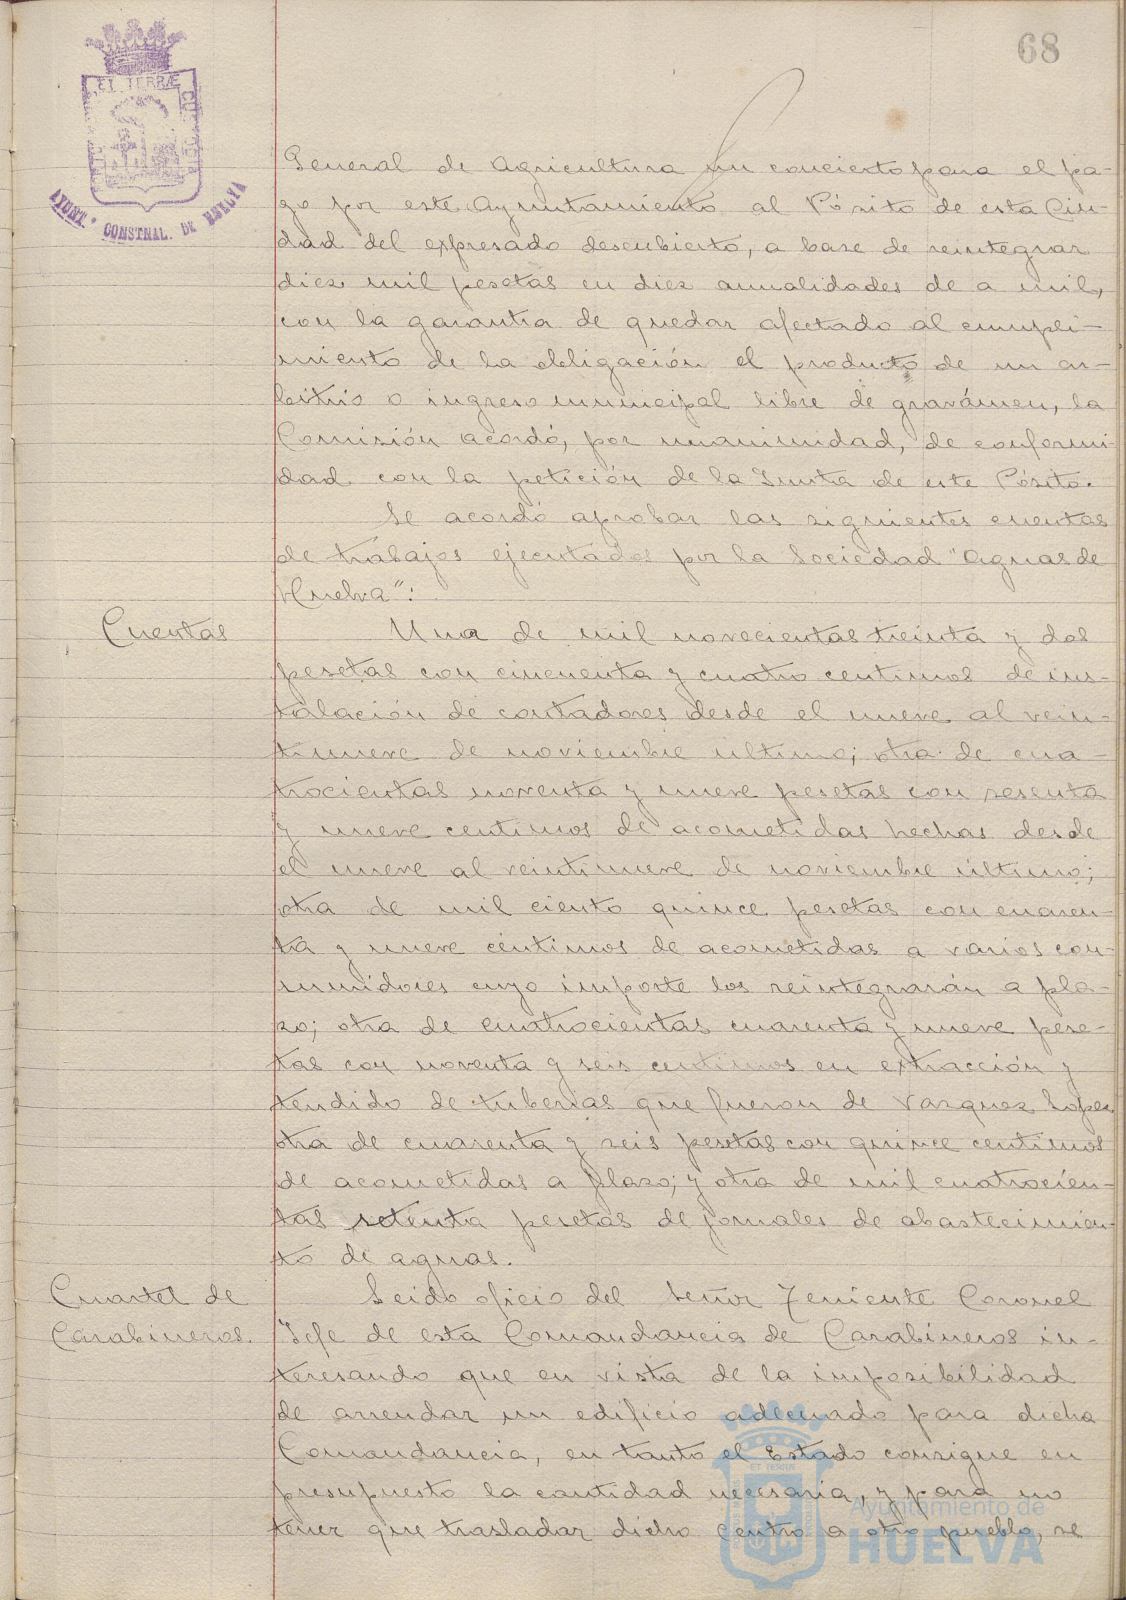 68
ET TERRÆ
AYUNT. CONSTNAL. DE HUELVA
General de Agricultura un concierto para el pa-
go por este Ayuntamiento al Pósito de esta Ciu-
dad del expresado descubierto, a base de reintegrar
diez mil pesetas en diez anualidades de a mil,
con la garantia de quedar afectado al cumpli-
miento de la obligación el producto de un ar-
bitrio o ingreso municipal libre de gravámen, la
Comisión acordó, por unanimidad, de conformi-
dad con la petición de la Junta de este Pósito.
Se acordó aprobar las siguientes cuentas
de trabajos ejecutados por la Sociedad "Aguas de
Huelva":
Cuentas
Una de mil novecientas treinta y dos
pesetas con cincuenta y cuatro centimos de ins-
talación de contadores desde el nueve al vein-
tinueve de noviembre ultimo; otra de cua-
trocientas noventa y nueve pesetas con sesenta
y nueve centimos de acometidas hechas desde
el nueve al veintinueve de noviembre último;
otra de mil ciento quince pesetas con cuaren-
ta y nueve céntimos de acometidas a varios con-
sumidores cuyo importe los reintegrarán a pla-
zo; otra de cuatrocientas cuarenta y nueve pese-
tas con noventa y seis centimos en extracción y
tendido de tuberias que fueron de Vazquez Lopez
otra de cuarenta y seis pesetas con quince centimos
de acometidas a plazo; y otra de mil cuatrocien-
tas setenta pesetas de jornales de abastecimien-
to de aguas.
Cuartel de
Carabineros.
Leido oficio del Señor Teniente Coronel
Jefe de esta Comandancia de Carabineros in-
teresando que en vista de la imposibilidad
de arrendar un edificio adecuado para dicha
Comandancia, en tanto el Estado consigue en
presupuesto la cantidad necesaria, y para no
tener que trasladar dicho Centro a otro pueblo, se
Ayuntamiento de
HUELVA